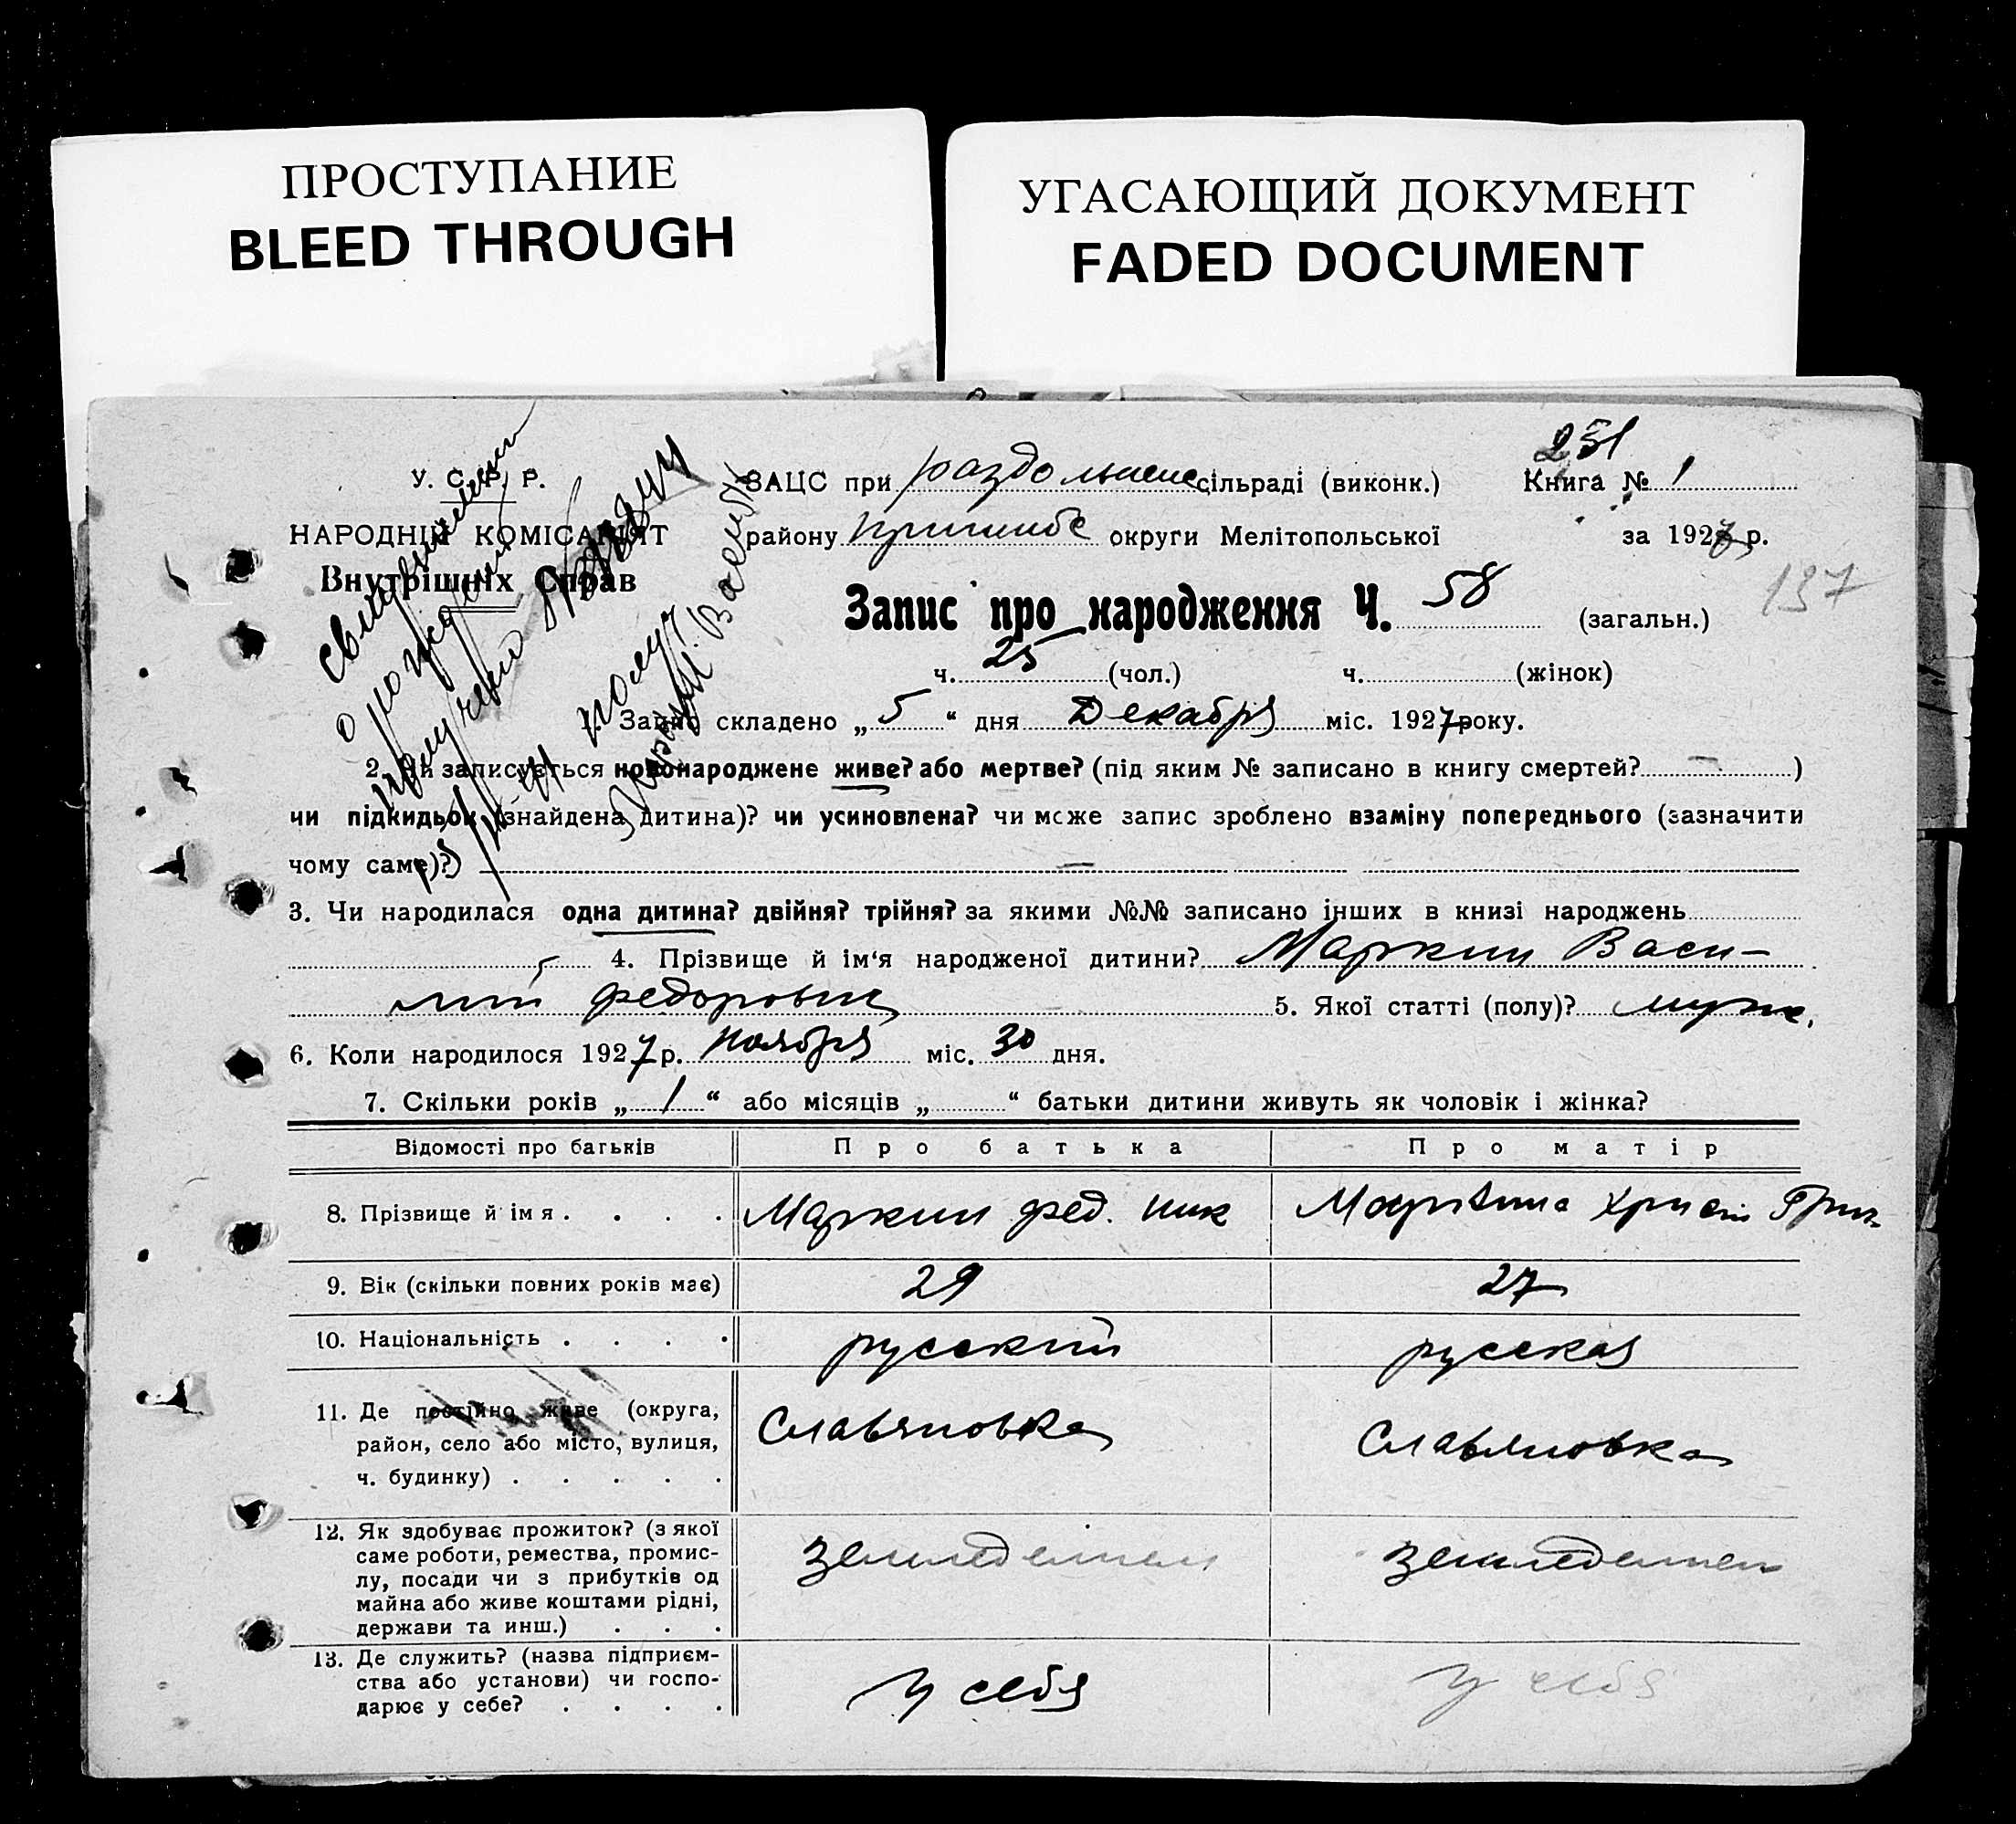 ПРОСТУПАНИЕ
BLEED THROUGH
УГАСАЮЩИЙ ДОКУМЕНТ
FADED DOCUMENT
251
У. С. Р. Р.
НАРОДНІЙ КОМІСАРІЯТ
Внутрішніх Справ
ЗАЦС при сільраді (виконк.) Книга № 1
району округи Мелітопольської за 1927 р.
137
Запис про народження Ч. 58 (загальн.)
ч. 25 (чол.) ч. (жінок)
о рождении
1. Запис складено „ 5 “ дня Декабря міс. 1927 року.
2. Чи записується новонароджене живе? або мертве? (під яким № записано в книгу смертей? — )
чи підкидьок (знайдена дитина)? чи усиновлена? чи може запис зроблено взаміну попереднього (зазначити
чому саме)? —
3. Чи народилася одна дитина? двійня? трійня? за якими №№ записано інших в книзі народжень
4. Прізвище й ім‘я народженої дитини? Маркин Васи-
лий Федорович 5. Якої статті (полу)? муж.
6. Коли народилося 1927 р. Ноября міс. 30 дня.
7. Скільки років „ 1 “ або місяців „ “ батьки дитини живуть як чоловік і жінка?
Відомості про батьків Про батька Про матір
8. Прізвище й імя . . . . Маркин Фед. Ник
9. Вік (скільки повних років має) 29 27
10. Національність . . . . русский русская
11. Де постійно живе (округа,
район, село або місто, вулиця,
ч. будинку) . . . . . Славяновка Славяновка
12. Як здобуває прожиток? (з якої
саме роботи, ремества, промис-
лу, посади чи з прибутків од
майна або живе коштами рідні,
держави та инш.) . . .
13. Де служить? (назва підприєм-
ства або установи) чи госпо-
дарює у себе? . . . . У себя У себя